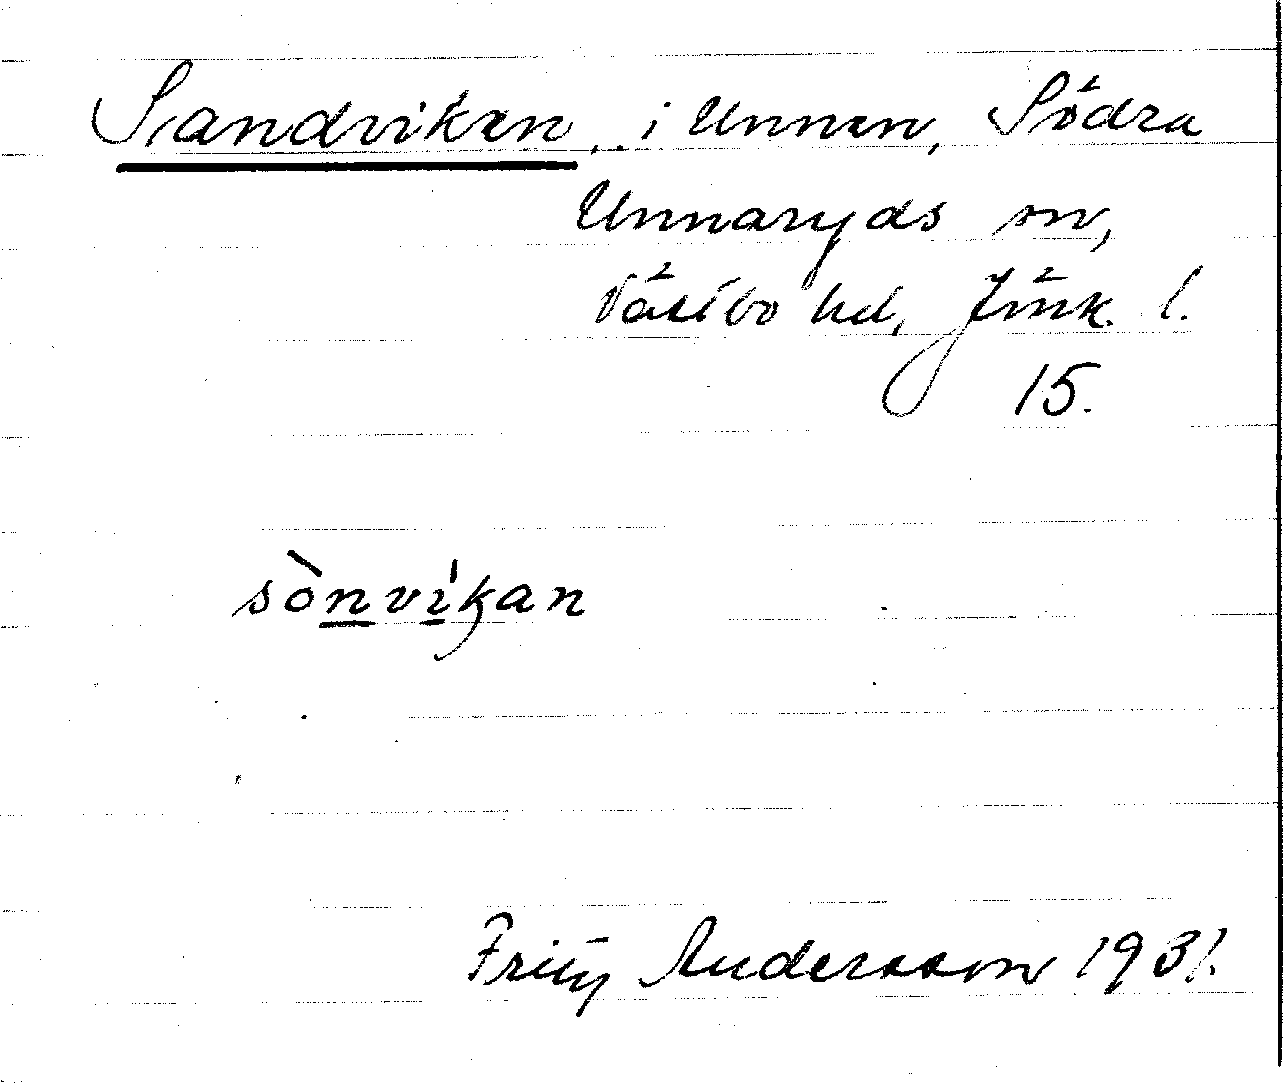 Sandviken, i Unnen, Södra
Unnaryds sn,
Västbo hd, Jönk. l.
15.
sònvi̍kan
Fritz Andersson 1931.